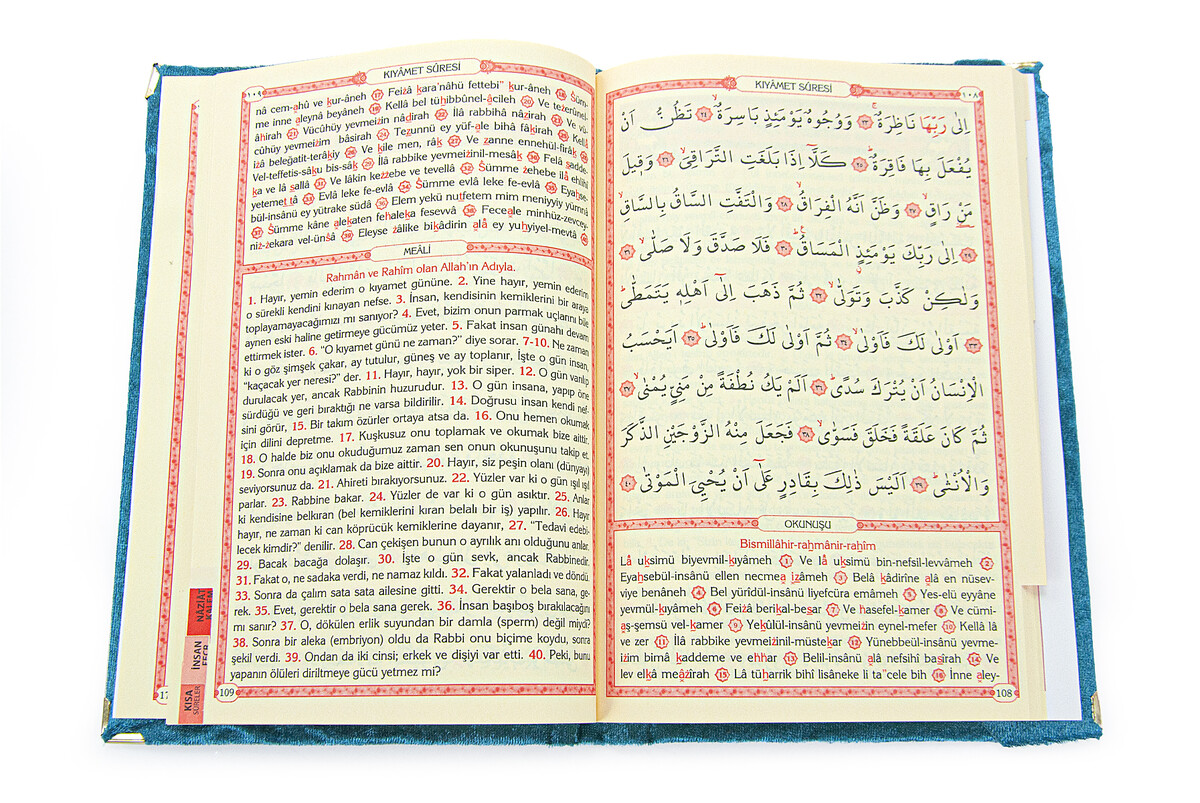 KIYÂMET SÛRESİ
١٠٨
اِلٰى رَبِّهَا نَاظِرَةٌۚ ﴿٢٣﴾ وَوُجُوهٌ يَوْمَئِذٍ بَاسِرَةٌۙ ﴿٢٤﴾ تَظُنُّ اَنْ
يُفْعَلَ بِهَا فَاقِرَةٌۜ ﴿٢٥﴾ كَلَّٓا اِذَا بَلَغَتِ التَّرَاقِيَۙ ﴿٢٦﴾ وَق۪يلَ
مَنْ رَاقٍۙ ﴿٢٧﴾ وَظَنَّ اَنَّهُ الْفِرَاقُۙ ﴿٢٨﴾ وَالْتَفَّتِ السَّاقُ بِالسَّاقِۙ
﴿٢٩﴾ اِلٰى رَبِّكَ يَوْمَئِذٍ الْمَسَاقُۜ ﴿٣٠﴾ فَلَا صَدَّقَ وَلَا صَلّٰىۙ ﴿٣١﴾
وَلٰكِنْ كَذَّبَ وَتَوَلّٰىۙ ﴿٣٢﴾ ثُمَّ ذَهَبَ اِلٰٓى اَهْلِه۪ يَتَمَطّٰىۜ
﴿٣٣﴾ اَوْلٰى لَكَ فَاَوْلٰىۙ ﴿٣٤﴾ ثُمَّ اَوْلٰى لَكَ فَاَوْلٰىۜ ﴿٣٥﴾ اَيَحْسَبُ
الْاِنْسَانُ اَنْ يُتْرَكَ سُدًىۜ ﴿٣٦﴾ اَلَمْ يَكُ نُطْفَةً مِنْ مَنِيٍّ يُمْنٰىۙ ﴿٣٧﴾
ثُمَّ كَانَ عَلَقَةً فَخَلَقَ فَسَوّٰىۙ ﴿٣٨﴾ فَجَعَلَ مِنْهُ الزَّوْجَيْنِ الذَّكَرَ
وَالْاُنْثٰىۜ ﴿٣٩﴾ اَلَيْسَ ذٰلِكَ بِقَادِرٍ عَلٰٓى اَنْ يُحْيِيَ الْمَوْتٰى ﴿٤٠﴾
OKUNUŞU
Bismillâhir-rahmânir-rahîm
Lâ uksimü biyevmil-kıyâmeh 1 Ve lâ uksimü bin-nefsil-levvâmeh 2
Eyahsebül-insânü ellen necmea izâmeh 3 Belâ kâdirîne alâ en nüsev-
viye benâneh 4 Bel yürîdül-insânü liyefcüra emâmeh 5 Yes-elü eyyâne
yevmül-kıyâmeh 6 Feizâ berikal-besar 7 Ve hasefel-kamer 8 Ve cümi-
aş-şemsü vel-kamer 9 Yekûlül-insânü yevmeizin eynel-mefer 10 Kellâ lâ
ve zer 11 İlâ rabbike yevmeizinil-müstekar 12 Yünebbeül-insânü yevme-
izim bimâ kaddeme ve ehhar 13 Belil-insânü alâ nefsihî basîrah 14 Ve
lev elkâ meâzîrah 15 Lâ tüharrik bihî lisâneke li ta"cele bih 16 İnne aley-
108
١٠٩
KIYÂMET SÛRESİ
nâ cem-ahû ve kur-âneh 17 Feizâ kara'nâhü fettebi" kur-âneh 18 Süm-
me inne aleynâ beyâneh 19 Kellâ bel tühibbûnel-âcileh 20 Ve tezerûnel-
âhirah 21 Vücûhüy yevmeizin nâdirah 22 İlâ rabbihâ nâzirah 23 Ve vü-
cûhüy yevmeizim bâsirah 24 Tezunnü ey yüf-ale bihâ fâkirah 25 Kellâ
izâ beleğatit-terâkıy 26 Ve kîle men, râk 27 Ve zanne ennehül-firâk 28
Vel-teffetis-sâku bis-sâk 29 İlâ rabbike yevmeizinil-mesâk 30 Felâ sadde-
ka ve lâ sallâ 31 Ve lâkin kezzebe ve tevellâ 32 Sümme zehebe ilâ ehlihî
yetemettâ 33 Evlâ leke fe-evlâ 34 Sümme evlâ leke fe-evlâ 35 Eyahse-
bül-insânü ey yütrake südâ 36 Elem yekü nutfetem mim meniyyiy yümnâ
37 Sümme kâne alekaten fehaleka fesevvâ 38 Feceale minhüz-zevcey-
niz-zekara vel-ünsâ 39 Eleyse zâlike bikâdirin alâ ey yuhyiyel-mevtâ 40
MEÂLİ
Rahmân ve Rahîm olan Allah'ın Adıyla.
1. Hayır, yemin ederim o kıyamet gününe. 2. Yine hayır, yemin ederim
o sürekli kendini kınayan nefse. 3. İnsan, kendisinin kemiklerini bir araya
toplayamayacağımızı mı sanıyor? 4. Evet, bizim onun parmak uçlarını bile
aynen eski haline getirmeye gücümüz yeter. 5. Fakat insan günahı devam
ettirmek ister. 6. "O kıyamet günü ne zaman?" diye sorar. 7-10. Ne zaman
ki o göz şimşek çakar, ay tutulur, güneş ve ay toplanır, İşte o gün insan,
"kaçacak yer neresi?" der. 11. Hayır, hayır, yok bir siper. 12. O gün varılıp
durulacak yer, ancak Rabbinin huzurudur. 13. O gün insana, yapıp öne
sürdüğü ve geri bıraktığı ne varsa bildirilir. 14. Doğrusu insan kendi nef-
sini görür, 15. Bir takım özürler ortaya atsa da. 16. Onu hemen okumak
için dilini depretme. 17. Kuşkusuz onu toplamak ve okumak bize aittir.
18. O halde biz onu okuduğumuz zaman sen onun okunuşunu takip et.
19. Sonra onu açıklamak da bize aittir. 20. Hayır, siz peşin olanı (dünyayı)
seviyorsunuz da. 21. Ahireti bırakıyorsunuz. 22. Yüzler var ki o gün ışıl ışıl
parlar. 23. Rabbine bakar. 24. Yüzler de var ki o gün asıktır. 25. Anlar
ki kendisine belkıran (bel kemiklerini kıran belalı bir iş) yapılır. 26. Hayır
hayır, ne zaman ki can köprücük kemiklerine dayanır, 27. "Tedavi edebi-
lecek kimdir?" denilir. 28. Can çekişen bunun o ayrılık anı olduğunu anlar.
29. Bacak bacağa dolaşır. 30. İşte o gün sevk, ancak Rabbinedir.
31. Fakat o, ne sadaka verdi, ne namaz kıldı. 32. Fakat yalanladı ve döndü.
33. Sonra da çalım sata sata ailesine gitti. 34. Gerektir o bela sana, ge-
rek. 35. Evet, gerektir o bela sana gerek. 36. İnsan başıboş bırakılacağını
mı sanır? 37. O, dökülen erlik suyundan bir damla (sperm) değil miydi?
38. Sonra bir aleka (embriyon) oldu da Rabbi onu biçime koydu, sonra
şekil verdi. 39. Ondan da iki cinsi; erkek ve dişiyi var etti. 40. Peki, bunu
yapanın ölüleri diriltmeye gücü yetmez mi?
109
NÂZİÂT
KALEM
İNSAN
FECR
KISA
SÛRELER